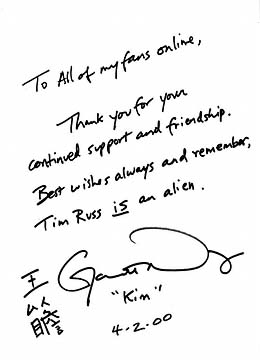 To All of my fans online,
Thank you for your
continued support and friendship.
Best wishes always and remember,
Tim Russ is an alien.
王
以
瞻
"Kim"
4.2.00